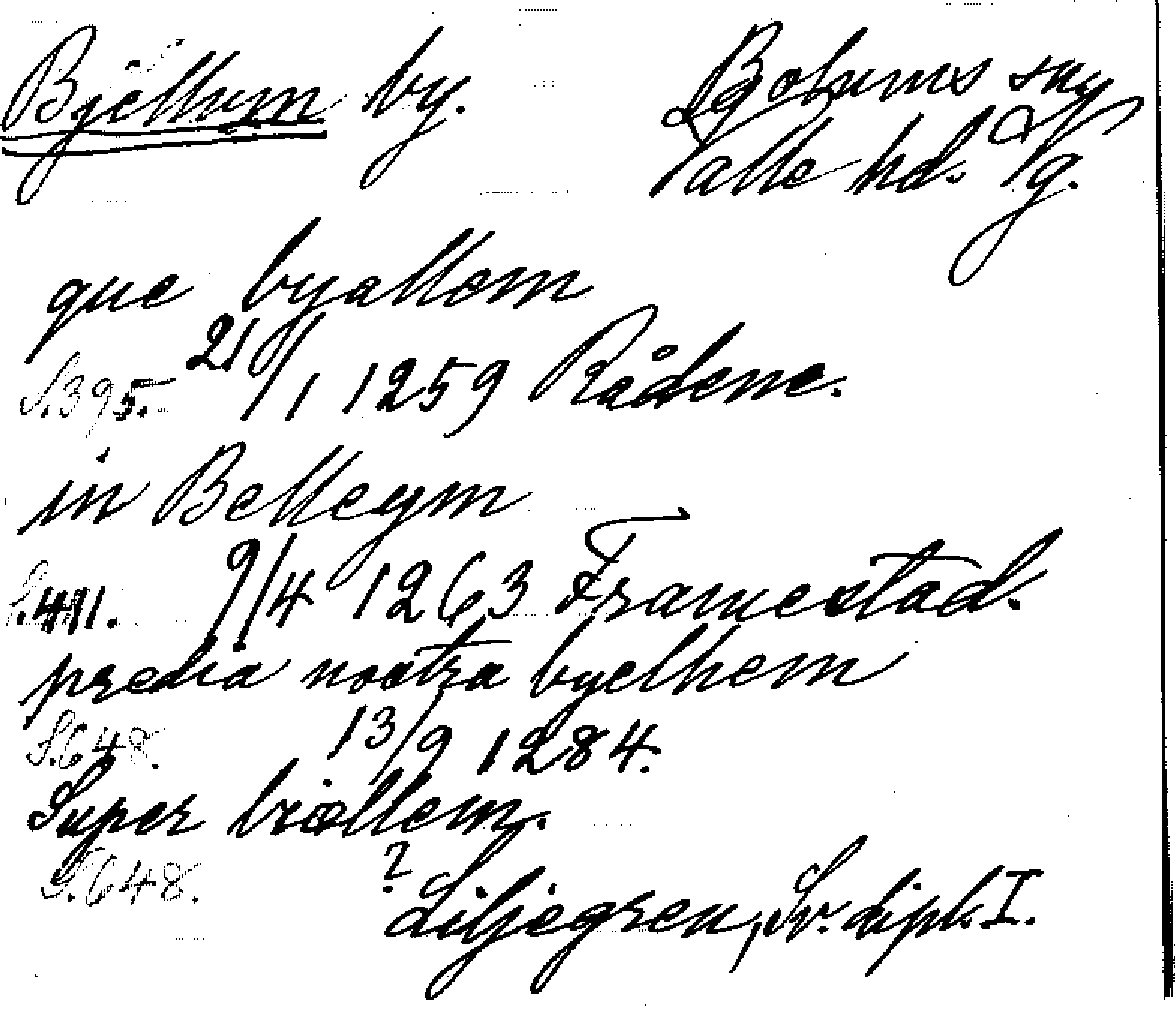 Bjellum by.
Bolums sn
Valle hd. Vg.
que byallem
S.395. 21/1 1259 Rådene.
in Belleym
S.411. 9/4 1263 Framestad.
predia nostra byelhem
S.648. 13/9 1284.
Super biællem.
S.648. ?
Liljegren, Sv. dipl. I.